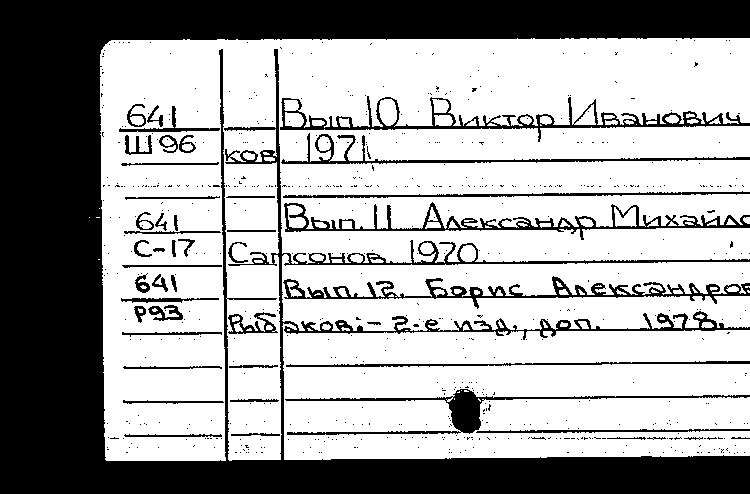 641 Вып. 10. Виктор Иванович
Ш96 ков. 1971.
641 Вып. 11. Александр Михайло
С-17 Самсонов. 1970.
641 Вып. 12. Борис Александров
Р93 Рыбаков: - 2-е изд., доп. 1978.